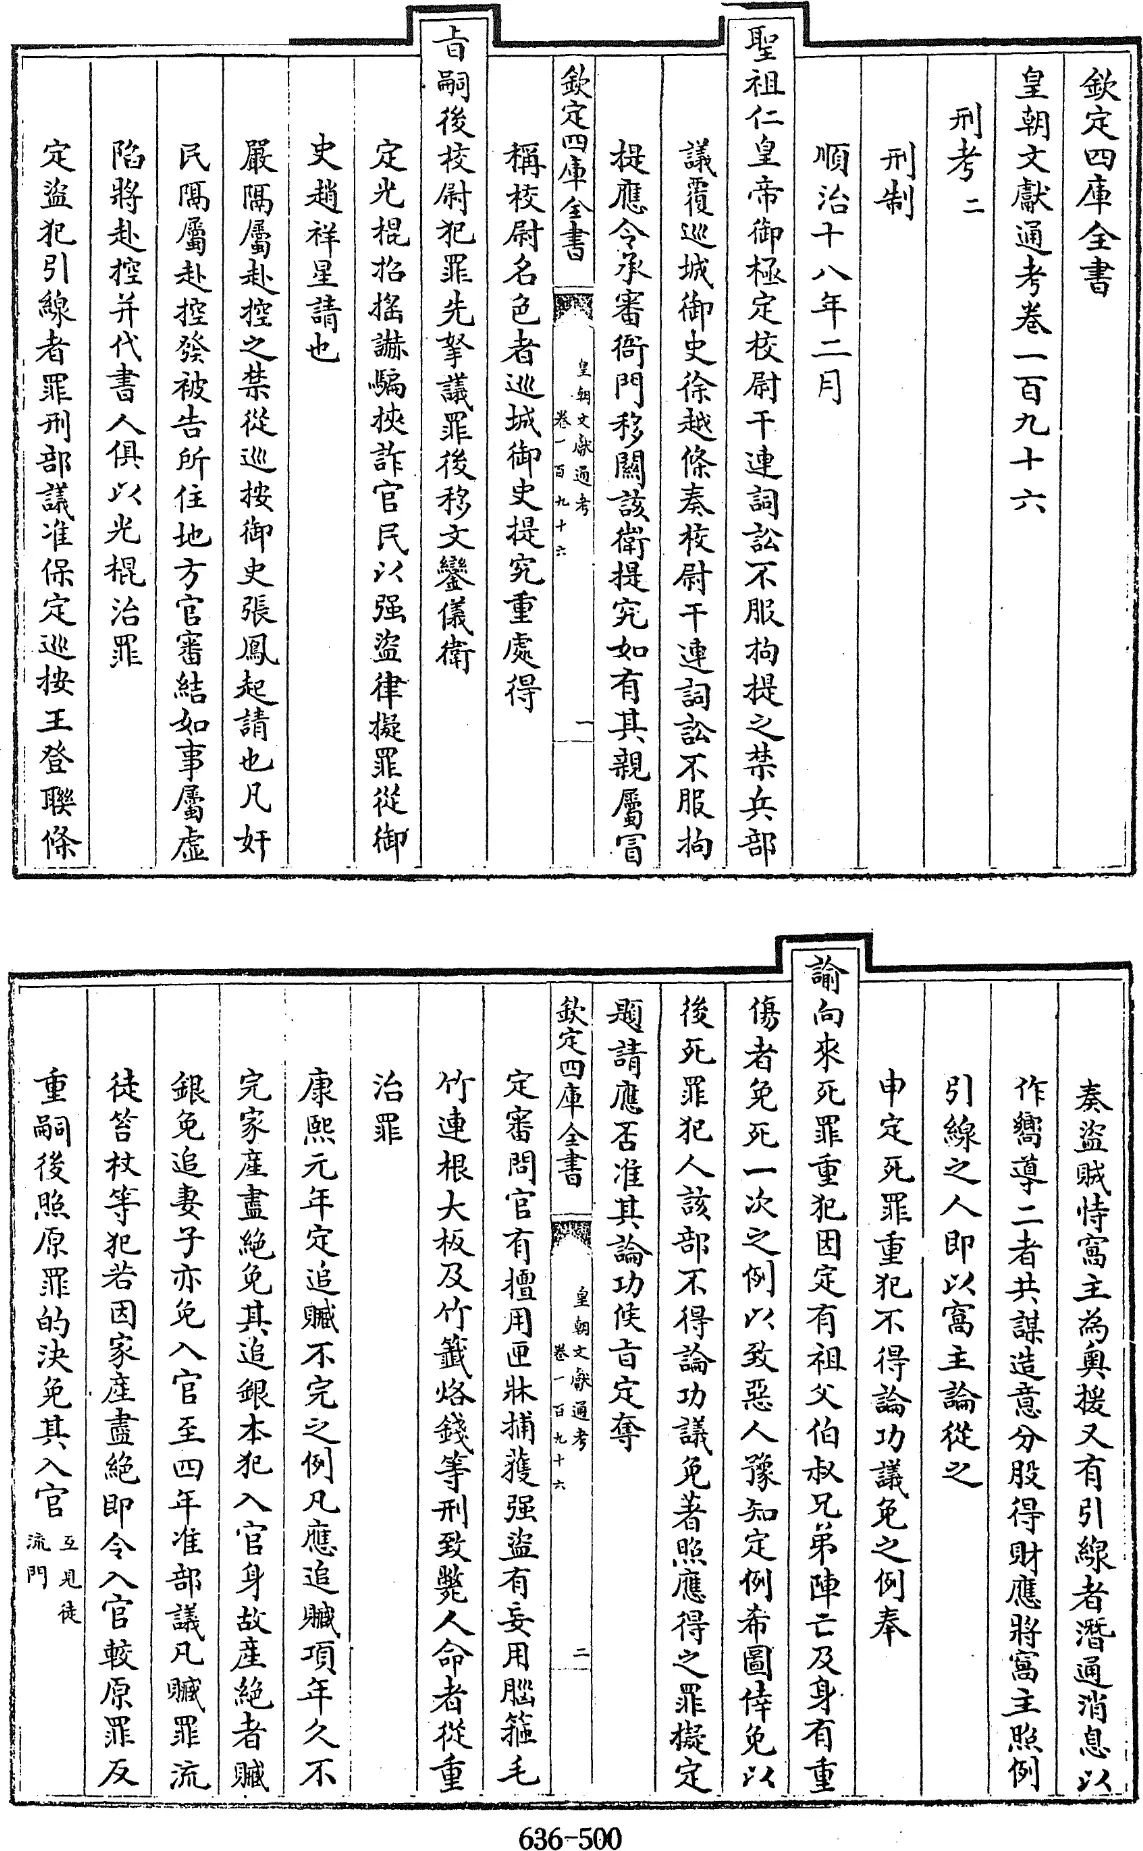 欽定四庫全書
皇朝文獻通考卷一百九十六
刑考二
刑制
順治十八年二月
聖祖仁皇帝御極定校尉干連詞訟不服拘提之禁兵部
議覆巡城御史徐越條奏校尉干連詞訟不服拘
提應令承審衙門移關該衛提究如有其親屬冒
欽定四庫全書
皇朝文獻通考
卷一百九十六
一
稱校尉名色者巡城御史提究重處得
旨嗣後校尉犯罪先拏議罪後移文鑾儀衛
定光棍招搖讓騙挾詐官民以强盜律擬罪從御
史趙祥星請也
嚴隔屬赴控之禁從巡按御史張鳳起請也凡奸
民隔屬赴控發被告所住地方官審結如事屬虛
陷將赴控并代書人俱以光棍治罪
定盜犯引線者罪刑部議准保定巡按王登聯條
奏盜賊恃窩主為奧援又有引線者潛通消息以
作嚮導二者共謀造意分股得財應將窩主照例
引線之人即以窩主論從之
申定死罪重犯不得論功議免之例奉
諭向來死罪重犯因定有祖父伯叔兄弟陣亡及身有重
傷者免死一次之例以致惡人豫知定例希圖倖免以
後死罪犯人該部不得論功議免著照應得之罪擬定
題請應否准其論功候旨定奪
欽定四庫全書
皇朝文獻通考
卷一百九十六
二
定審問官有擅用匣牀捕獲强盜有妄用腦箍毛
竹連根大板及竹籤烙錢等刑致斃人命者從重
治罪
康熙元年定追贓不完之例凡應追贓項年久不
完家產盡絕免其追銀本犯入官身故產絕者贓
銀免追妻子亦免入官至四年准部議凡贓罪流
徒笞杖等犯若因家產盡絕即令入官較原罪反
重嗣後照原罪的決免其入官
互見徒
流門
636-500